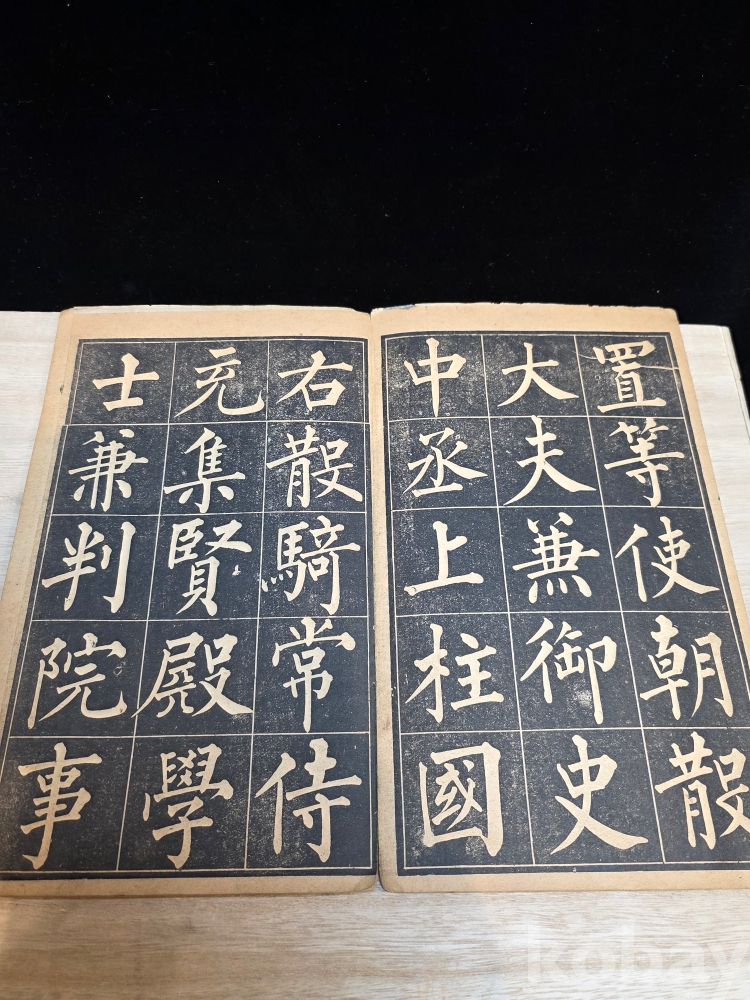 置等使朝散
大夫兼御史
中丞上柱國
右散騎常侍
充集賢殿學
士兼判院事
kobay